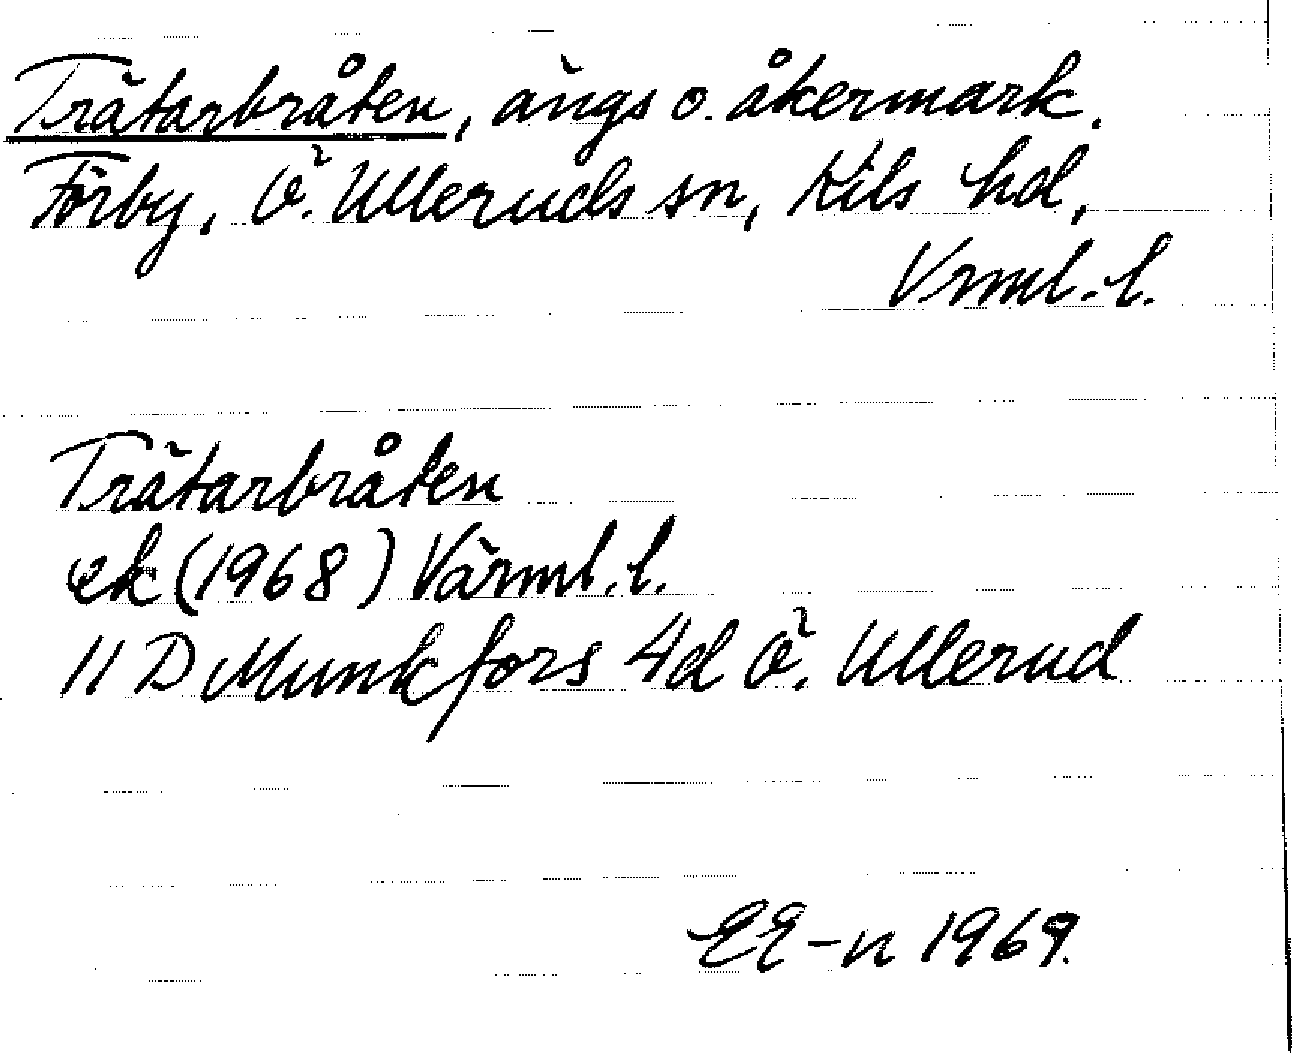 Trätarbråten, ängs o. åkermark.
Förby, Ö. Ulleruds sn, Kils hd,
Vrml.l.
Trätarbråten
ek (1968) Värml.l.
11 D Munkfors 4d Ö. Ullerud
EE-n 1969.